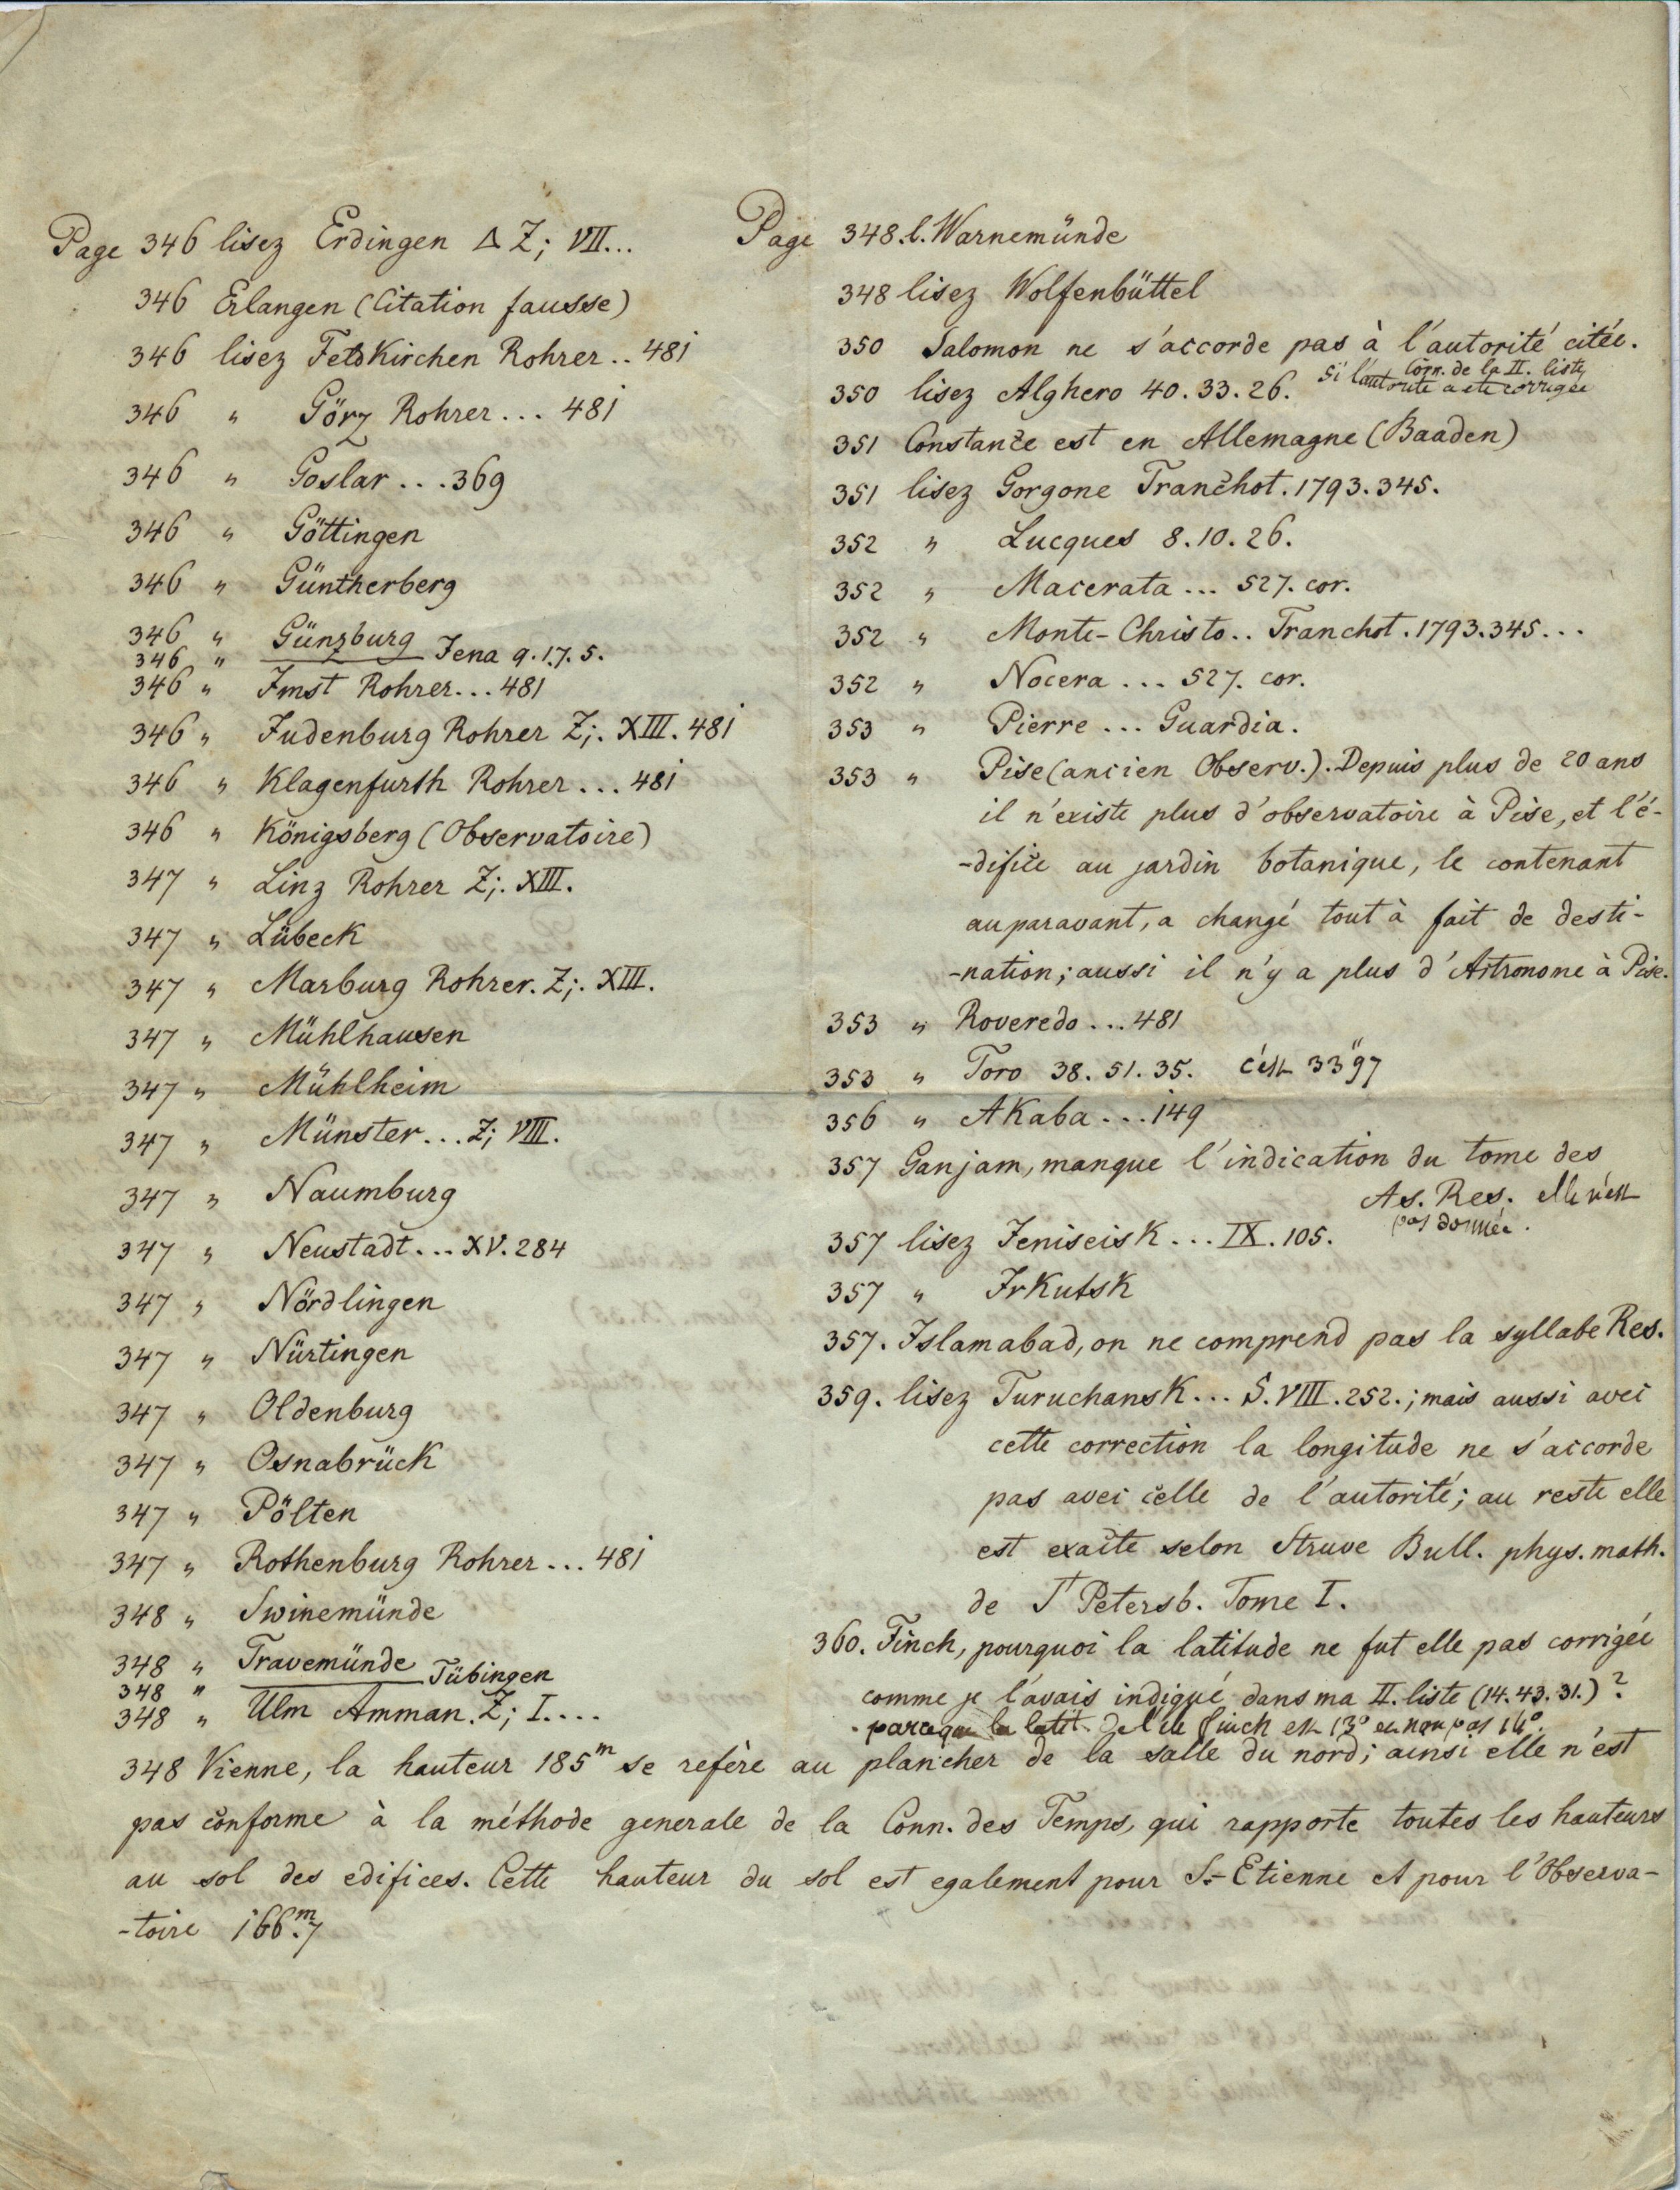 Page 346 lisez Erdingen Δ Z; VII...
346 Erlangen (Citation fausse)
346 lisez Feldkirchen Rohrer.. 481
346 " Görz Rohrer... 481
346 " Goslar... 369
346 " Göttingen
346 " Güntherberg
346 " Günzburg
346 " Jena 9.17.5.
346 " Imst Rohrer... 481
346 " Judenburg Rohrer Z;. XIII. 481
346 " Klagenfurth Rohrer... 481
346 " Königsberg (Observatoire)
347 " Linz Rohrer Z;. XIII.
347 " Lübeck
347 " Marburg Rohrer. Z;. XIII.
347 " Mühlhausen
347 " Mühlheim
347 " Münster... Z; VIII.
347 " Naumburg
347 " Neustadt... XV. 284
347 " Nördlingen
347 " Nürtingen
347 " Oldenburg
347 " Osnabrück
347 " Pölten
347 " Rothenburg Rohrer... 481
348 " Swinemünde
348 " Travemünde
348 " Tübingen
348 " Ulm Amman. Z; I....
Page 348. l. Warnemünde
348 lisez Wolfenbüttel
350 Salomon ne s'accorde pas à l'autorité citée.
350 lisez Alghero 40.33.26. Si l'autorité a été corrigée
Corr. de la II. liste
351 Constance est en Allemagne (Baaden)
351 lisez Gorgone Tranchot. 1793. 345.
352 " Lucques 8.10.26.
352 " Macerata... 527. cor.
352 " Monte-Christo.. Tranchot. 1793. 345...
352 " Nocera... 527. cor.
353 " Pierre... Guardia.
353 " Pise (ancien Observ.). Depuis plus de 20 ans
il n'existe plus d'observatoire à Pise, et l'é-
-difice au jardin botanique, le contenant
auparavant, a changé tout à fait de desti-
-nation; aussi il n'y a plus d'Astronome à Pise.
353 " Roveredo... 481
353 " Toro 38.51.35. c'est 33"97
356 " Akaba... 149
357 Ganjam, manque l'indication du tome des
As. Res. elle n'est
pas donnée.
357 lisez Jeniseisk... IX. 105.
357 " Irkutsk
357. Islamabad, on ne comprend pas la syllabe Res.
359. lisez Turuchansk... S. VIII. 252.; mais aussi avec
cette correction la longitude ne s'accorde
pas avec celle de l'autorité; au reste elle
est exacte selon Struve Bull. phys. math.
de St Petersb. Tome I.
360. Finch, pourquoi la latitude ne fut elle pas corrigée
comme je l'avais indiqué dans ma II. liste (14.43.31.)?
parceque la latit. de l'île Finch est 13° et non pas 14°.
348 Vienne, la hauteur 185m se refère au plancher de la salle du nord; ainsi elle n'est
pas conforme à la méthode generale de la Conn. des Temps, qui rapporte toutes les hauteurs
au sol des edifices. Cette hauteur du sol est egalement pour St-Etienne et pour l'Observa-
-toire 166m.7